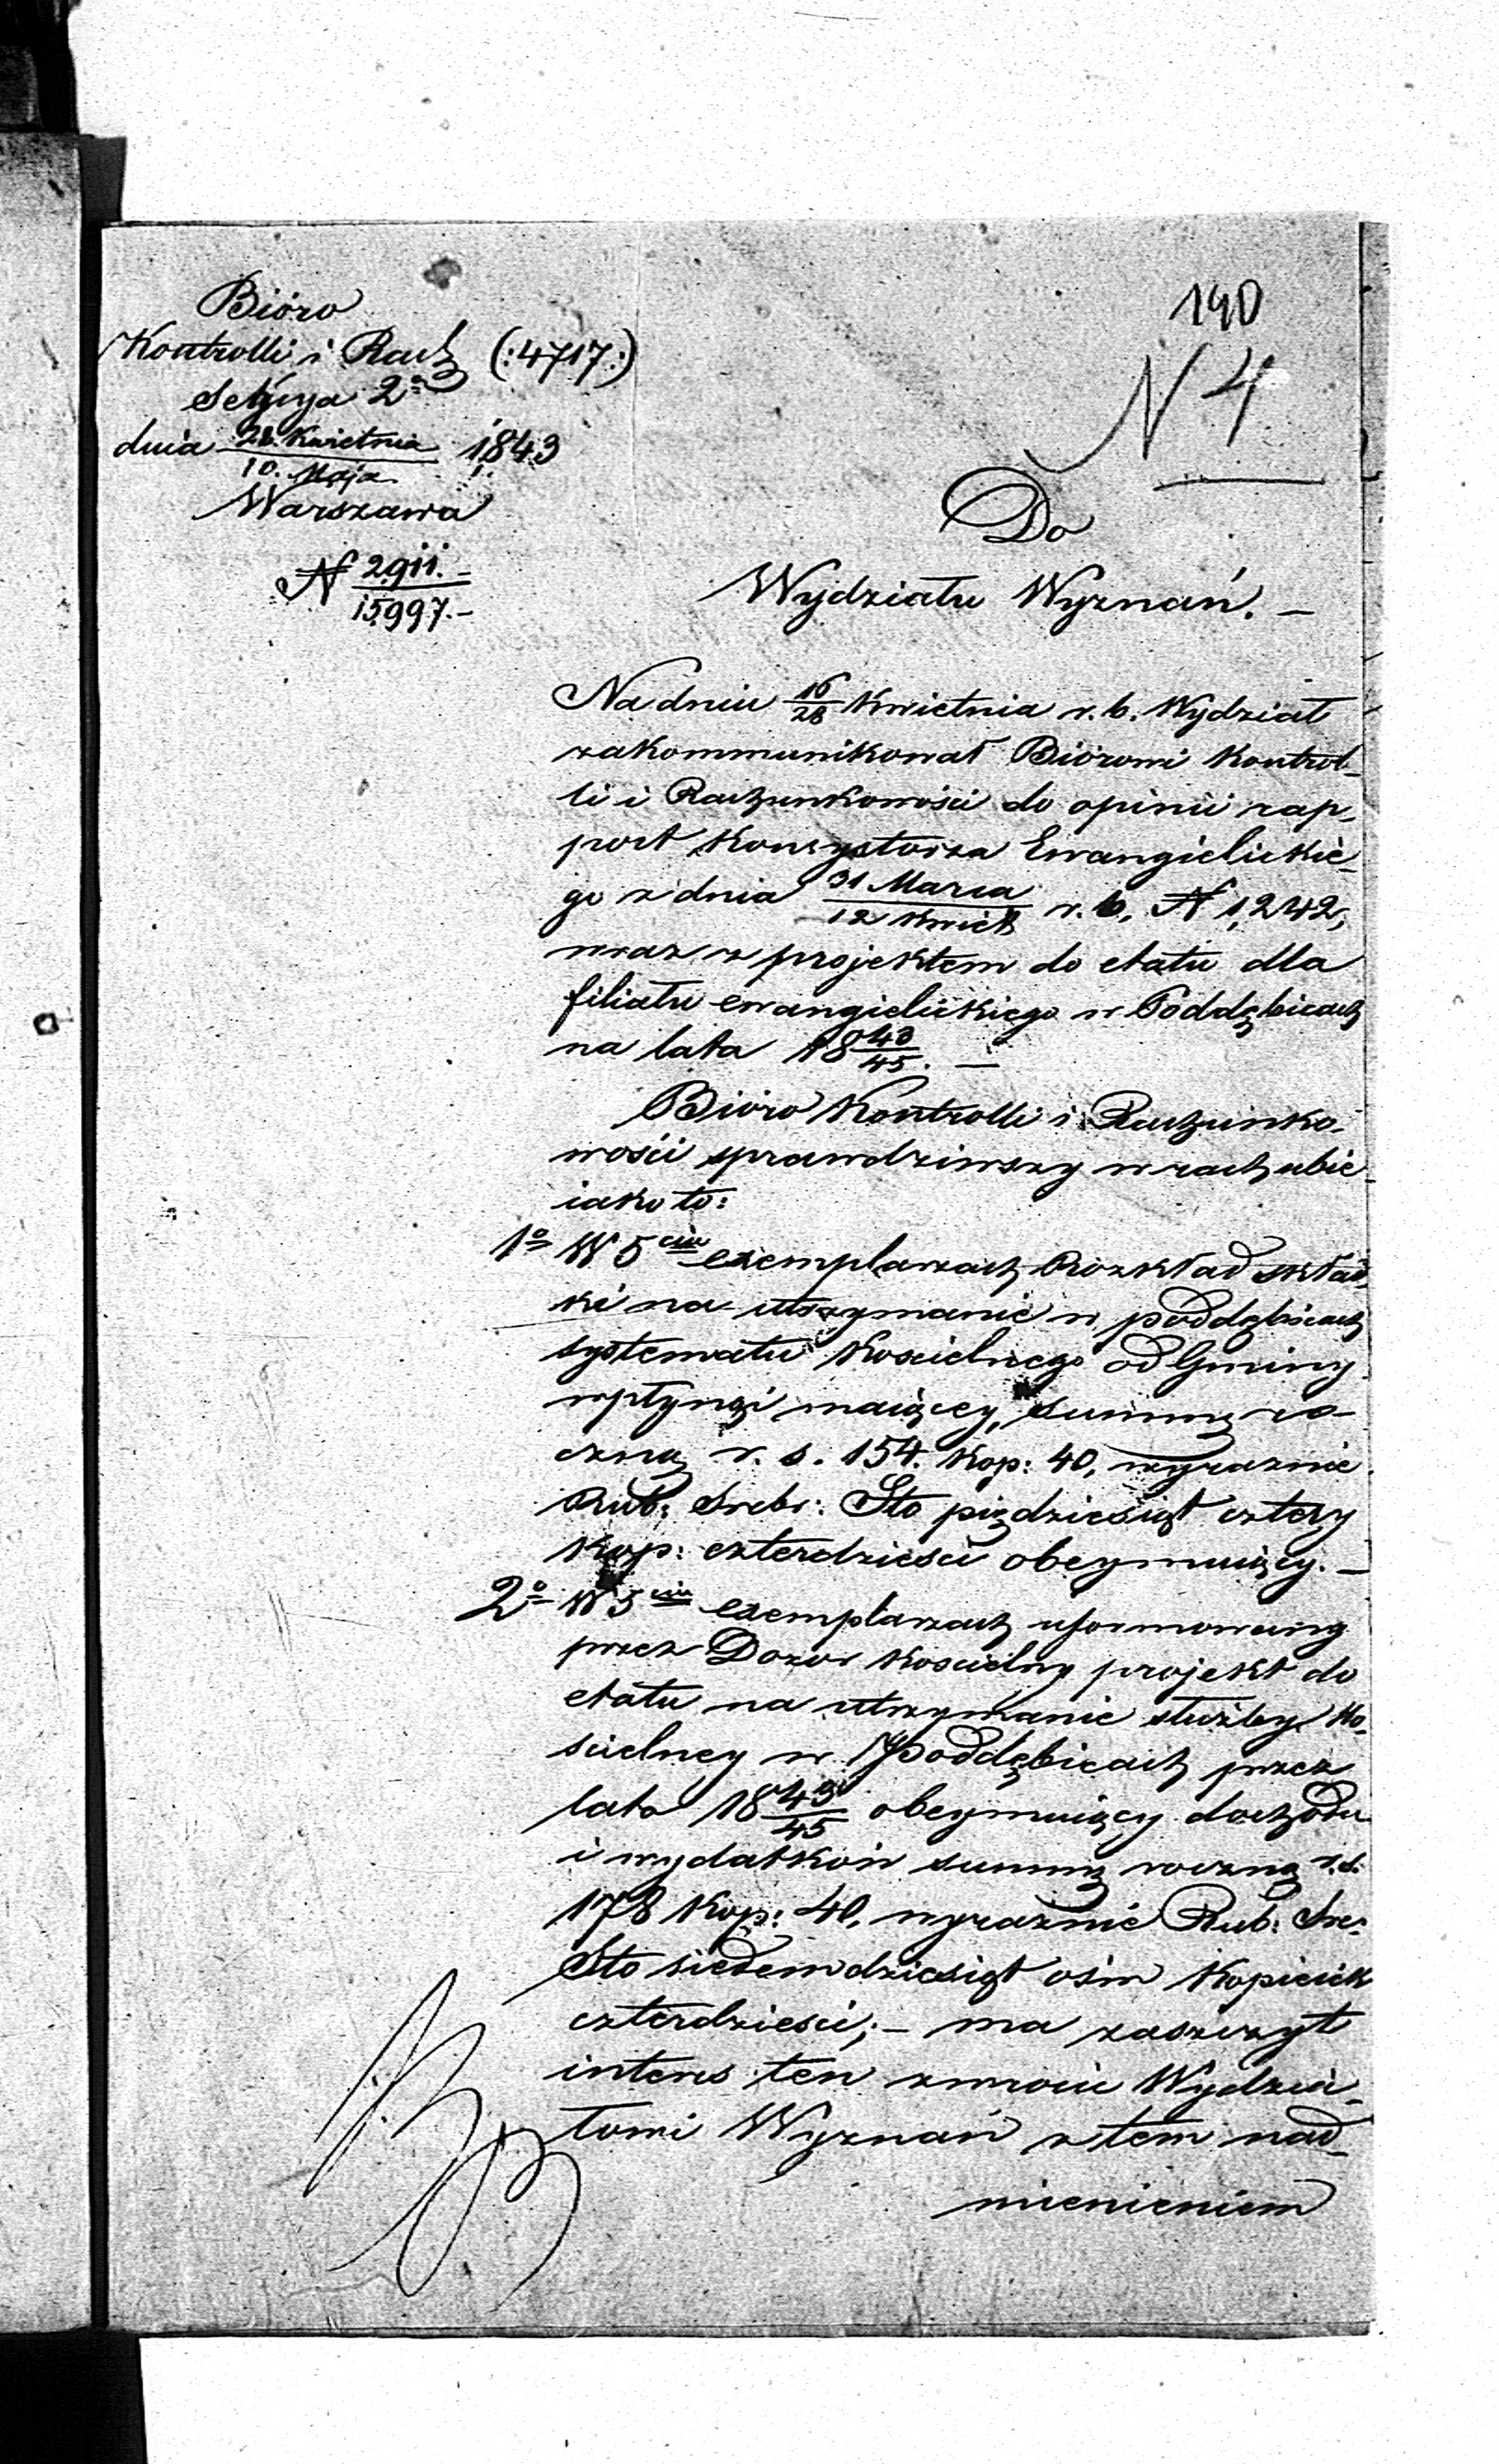 190
N 4
Bióro
Kontrolli i Rach (:4717:)
Sekcya 2ª
dnia 28. Kwietnia / 10. Maja 1843
Warszawa
N 2911. / 15997.
Do
Wydziału Wyznań. —
Na dniu 16/28 Kwietnia r. b. Wydział
zakommunikował Biórowi Kontrol-
li i Rachunkowości do opinii rap-
port Konsystorza Ewangielickie-
go z dnia 31 Marca / 12 Kwiet r. b. N 1,242,
wraz z projektem do etatu dla
filiału ewangielickiego w Poddębicach
na lata 18 43/45. —
Bióro Kontrolli i Rachunko-
wości sprawdziwszy w rachubie
iako to:
1º W 5ciu exemplarzach Rozkład skład-
ki na utrzymanie w poddębicach
systematu Kościelnego od Gminy
wpłynąć maiącey, summę ro-
czną r. s. 154. Kop: 40, wyraźnie
Rub: Srebr: Sto piędziesiąt cztery
Kop: czterdzieści obeymuiący. —
2º W 5ciu exemplarzach uformowany
przez Dozor Kościelny projekt do
etatu na utrzymanie służby Ko-
ścielney w Poddębicach przez
lata 18 43/45 obeymuiący dochodu
i wydatków summę roczną r. s.
178 Kop: 40, wyraźnie Rub: Sre:
Sto siedemdziesiąt ośm Kopieiek
czterdzieści; — ma zaszczyt
interes ten zwrócić Wydzia-
łowi Wyznań z tem nad-
mienieniem